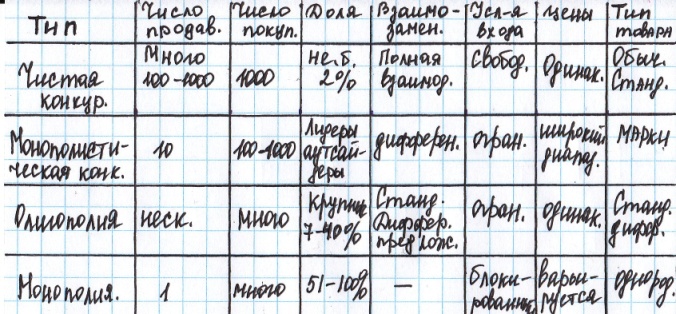 Тип Число продав. Число покуп. Доля Взаимо-замен. Усл-я входа цены Тип товара
Чистая конкур. Много 100-1000 1000 не б. 2% Полная взаимод. Свобод. Одинак. Обыч. Станд.
Монополисти-ческая конк. 10 100-1000 Лидеры аутсай-деры дифферен. огран. широкий диапаз. марки
Олигополия неск. много крупные 7-40% Станд. Диффер. предлож. огран. одинак. Станд. диффер.
Монополия. 1 много 51-100% — блоки-рованный варьи-руется однород.